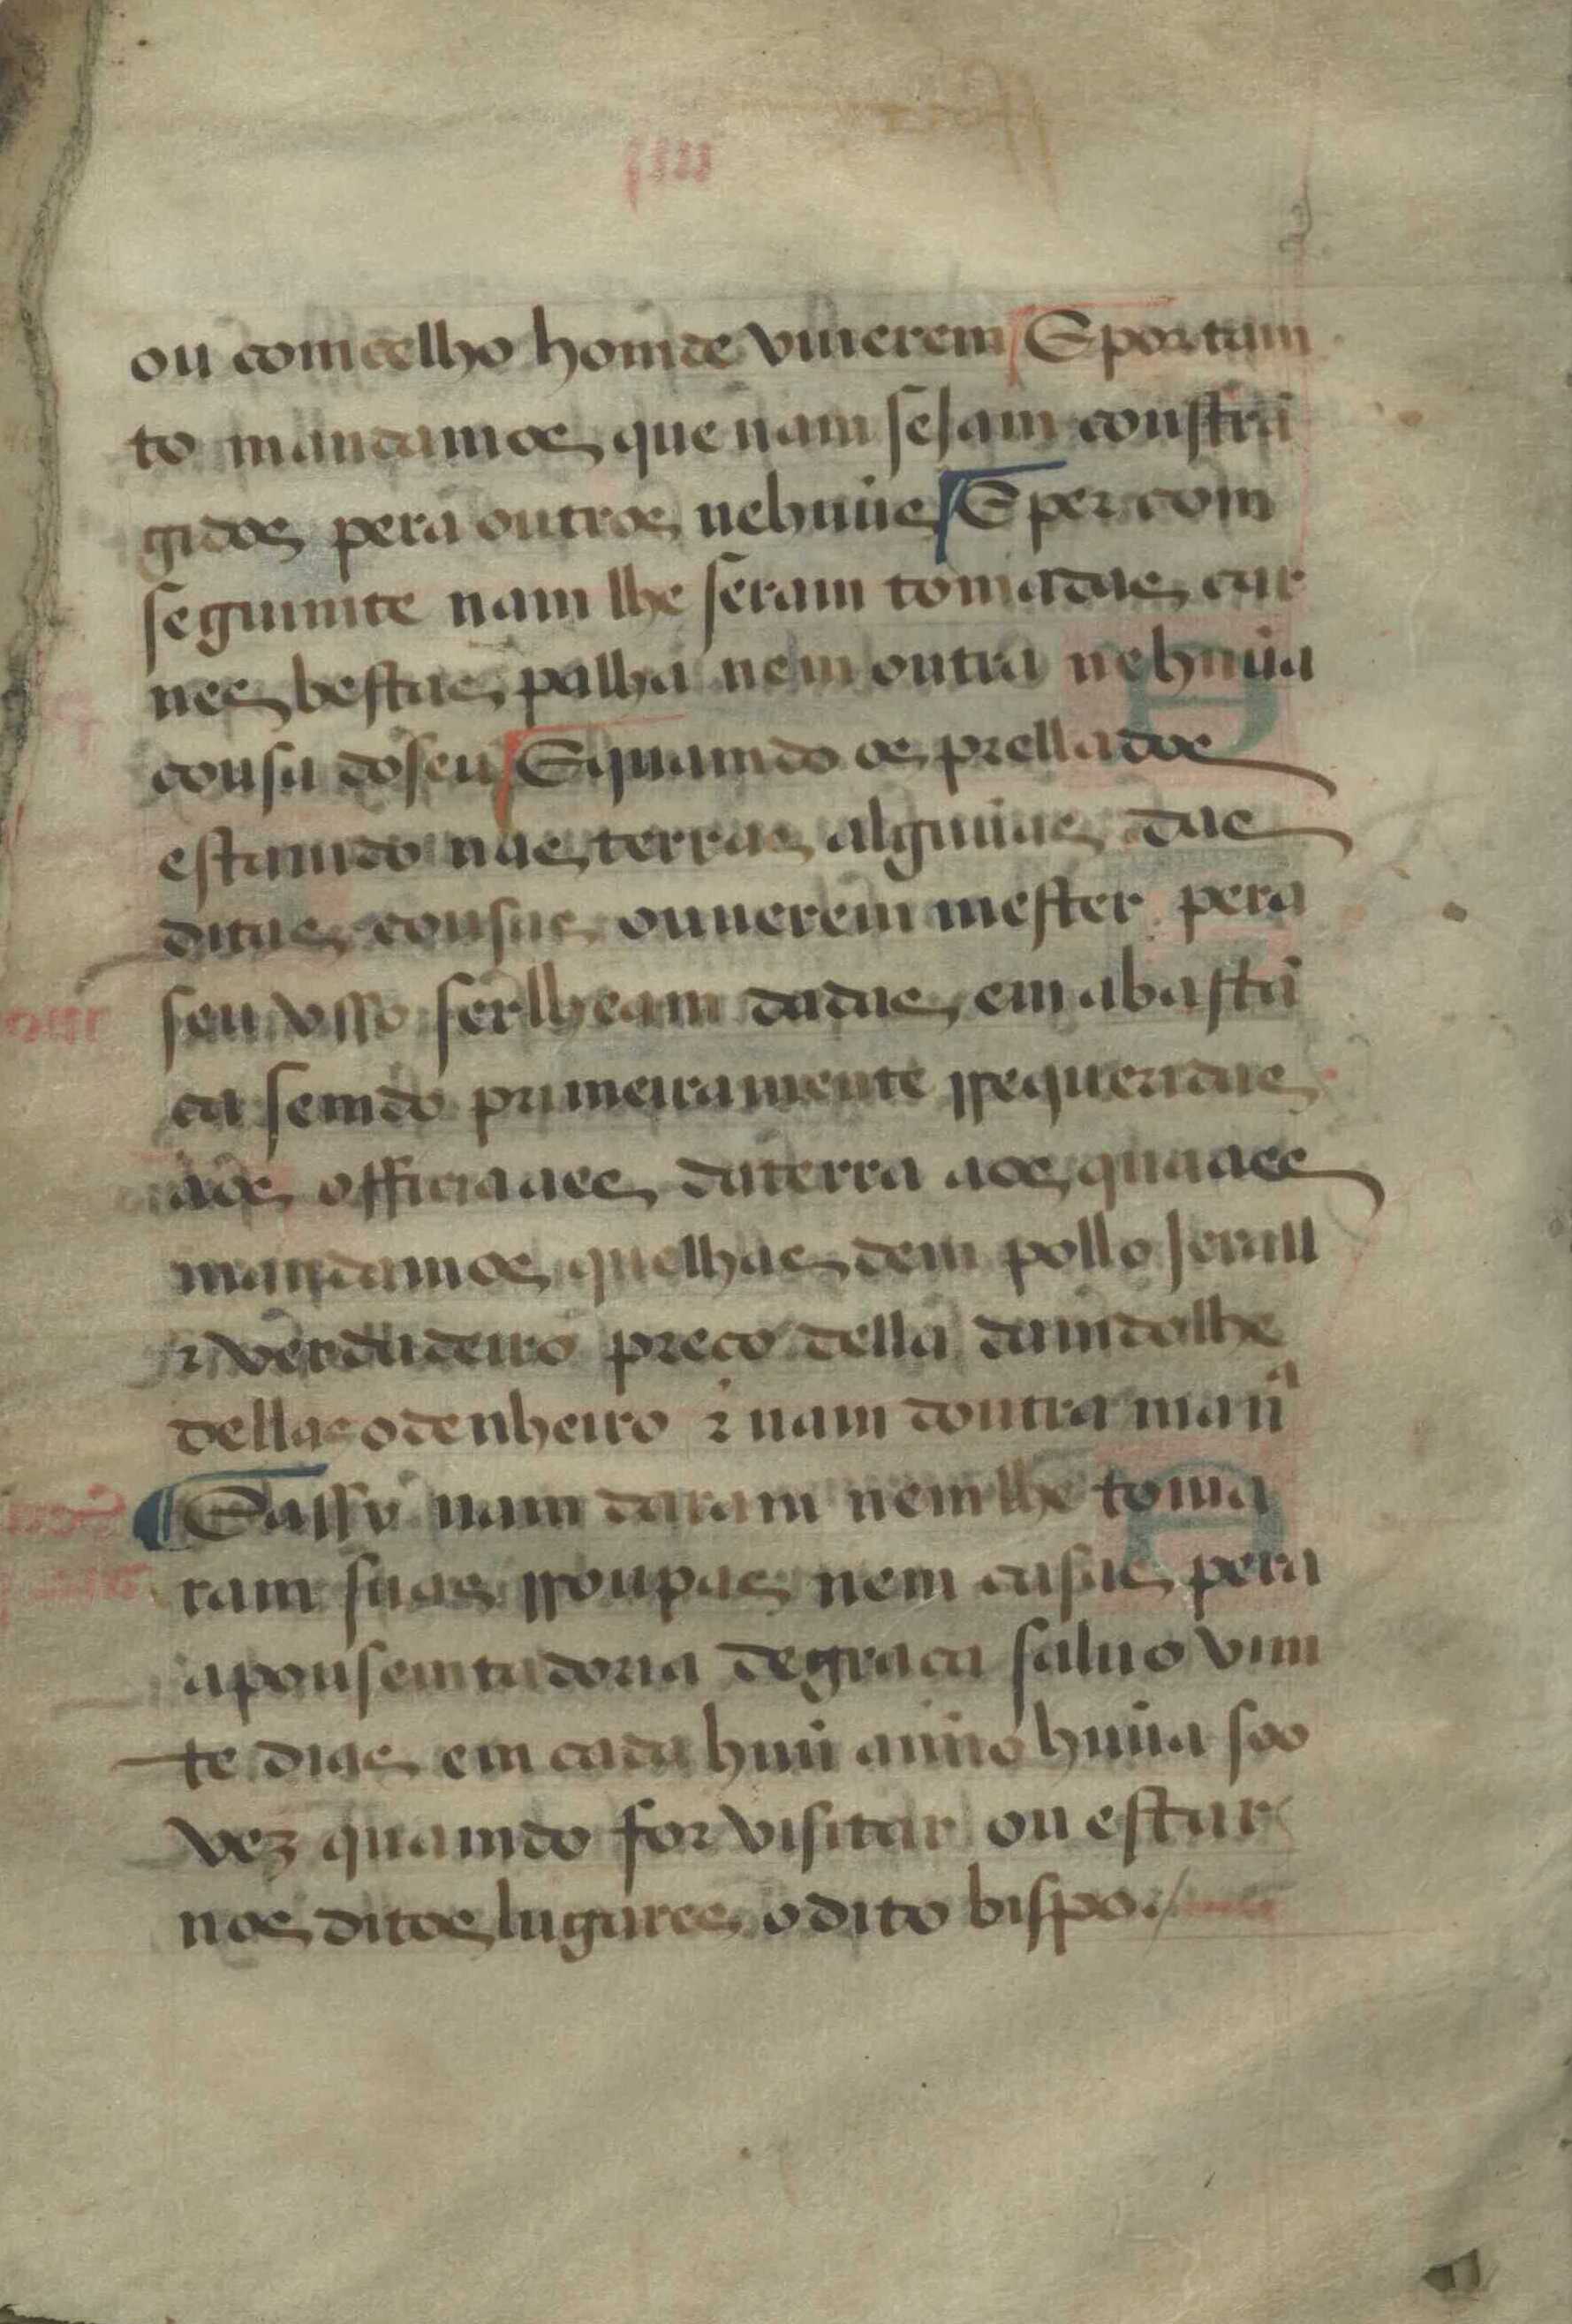 ou comcelho homde viuerem E portam
to mandamos que nam seJam constrã
gidos pera outros nehuũs E per com
seguimte nam lhe seram tomadas car
nes bestas palha nem outra nehuũa
cousa do seu E quamdo os prellados
estamdo nas terras alguũas das
ditas cousas ouuerem mester pera
seu vsso serlheam dadas em abastã
ca semdo primeiramente rrequeridas
aos officiaaes da terra aos quaaes
mandamos que lhas dem pollo Jerall
⁊ verdadeiro preço della damdolhe
dellas o denheiro ⁊ nam doutra manrª
E assy nam daram nem lhe toma
ram suas rroupas nem casas pera
apousemtadoria de graca saluo vim
te dias em cada huũ anno huũa soo
vez quamdo for visitar ou estar
nos ditos lugares o dito bispo./